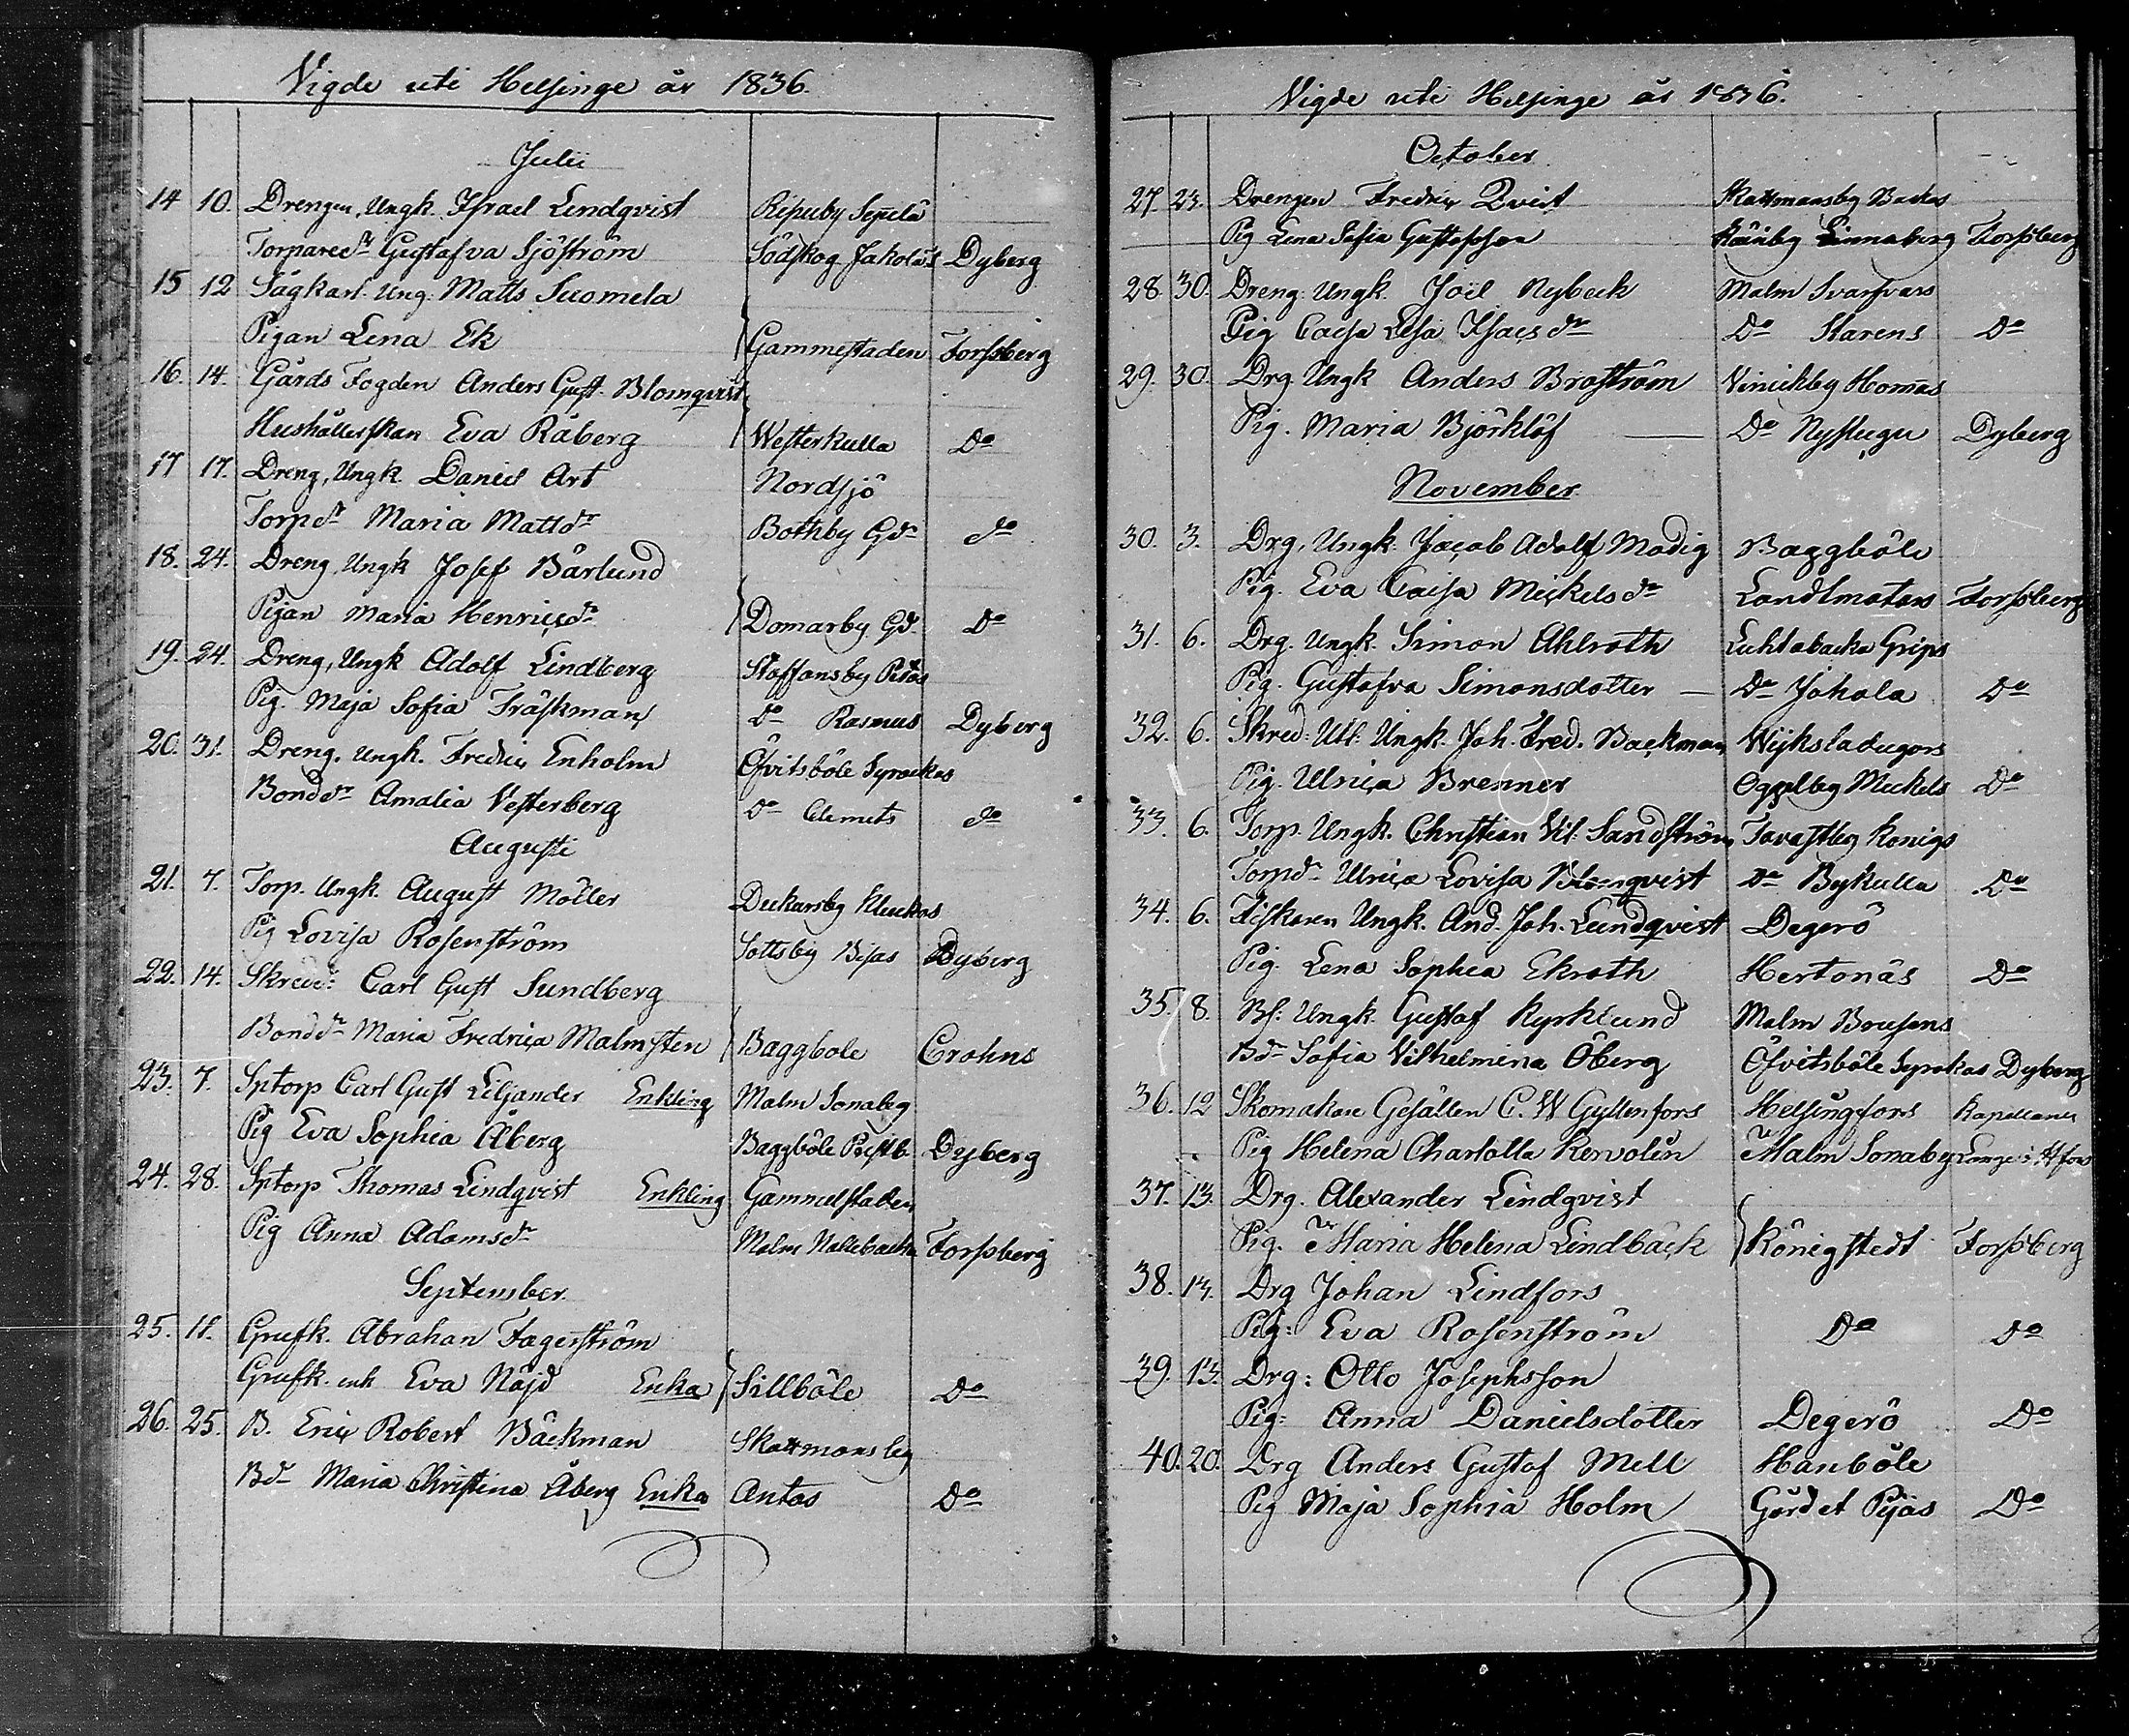 Vigde uti Helsinge år 1836.
Julii
14 10. Drengen, Ungk. Israel Lindqvist Ripuby Seppelä
Torpared:r Gustafva Sjöström Södskog Jakolas Dyberg
15 12 Sågkarl. Ung. Matts Suomela
Pigan Lena Ek Gammelstaden Forssberg
16. 14. Gårds Fogden Anders Gust. Blomqvist
Hushållerskan Eva Råberg Westerkulla Do
17 17. Dreng, Ungk. Daniel Art Nordsjö
Torpdr Maria Mattsdr Bothby Gd do
18. 24. Dreng, Ungk Josef Bärlund
Pigan Maria Henricsdr Domarby Gd. Do
19. 24. Dreng, Ungk Adolf Lindberg Staffansby Petas
Pig. Maja Sofia Träskman Do Rasmus Dyberg
20. 31. Dreng. Ungk. Fredric Enholm Öfvitsböle Syrackas
Bonddr Amalia Vesterberg Do Clemets do
Augusti
21. 7. Torp. Ungk. August Möller Dickursby Kluckas
Pig Lovisa Rosenström Sottsby Bisas Dyberg
22. 14. Skredd: Carl Gust Sundberg
Bonddr Maria Fredrica Malmsten Baggbole Crohns
23. 7. Sptorp Carl Gust Liljander Enkling Malm Sonaby
Pig Eva Sophia Åberg Baggböle Dyberg
24. 28. Sptorp Thomas Lindqvist Enkling Gammelstaden
Pig Anna Adamsdr Malm Nallebacka Forssberg
September
25. 11. Grufk. Abrahan Fagerström
Grufk. enk Eva Nöjd Enka Sillböle Do
26. 25. B. Eric Robert Bäckman Skattmansby
Bdr Maria Christina Åberg Enka Antas Do
Vigde uti Helsinge år 1836.
October
27. 23. Drengen Fredric Qvist Skattmansby Backas
Pig Lena Sofia Gustafsson Linnaberg Forssberg
28. 30. Dreng. Ungk. Joel Nybeck Malm Svarfvars
Pig Caisa Lisa Isacsdr Do Starens Do
29. 30. Drg. Ungk Anders Broström Vinickby Hommas
Pig. Maria Björklöf Do Nystugu Dyberg
November
30. 3. Drg. Ungk. Jacob Adolf Modig Baggböle
Pig. Eva Caisa Mickelsdr Landtmätars Forssberg
31. 6. Drg. Ungk. Simon Ahlroth Luhtabacka Grips
Pig. Gustafva Simonsdotter Do Johola Do
32. 6. Skred. Utl. Ungk. Joh. Fred. Backman Wijksladugors
Pig. Ulrica Brenner Oggelby Mickels Do
33. 6. Torp. Ungk. Christian Vil. Sandström Tavastby Konigs
Tornd. Ulrica Lovisa Blomqvist Do Bykulla Do
34. 6. Fiskaren Ungk. And. Joh. Lundqvist Degerö
Pig. Lena Sophia Ekroth Hertonäs Do
35. 8. Bs: Ungk. Gustaf Kyrklund Malm Brusans
Bdr Sofia Vilhelmina Öberg Öfvitsböle Syrakas Dyberg
36. 12 Skomakare Gesällen C. W Gyllenfors Helsingfors Kapellanen
Pig Helena Charlotta Kervolin Malm Sonaby Lange i Hfors
37. 13. Drg. Alexander Lindqvist
Pig. Maria Helena Lindbäck Königstedt Forssberg
38. 13. Drg Johan Lindfors
Pig: Eva Rosenström Do Do
39. 13. Drg: Otto Josephsson
Pig: Anna Danielsdotter Degerö Do
40. 20. Drg Anders Gustaf Mell Hanböle
Pig Maja Sophia Holm Gårdet Pijas Do